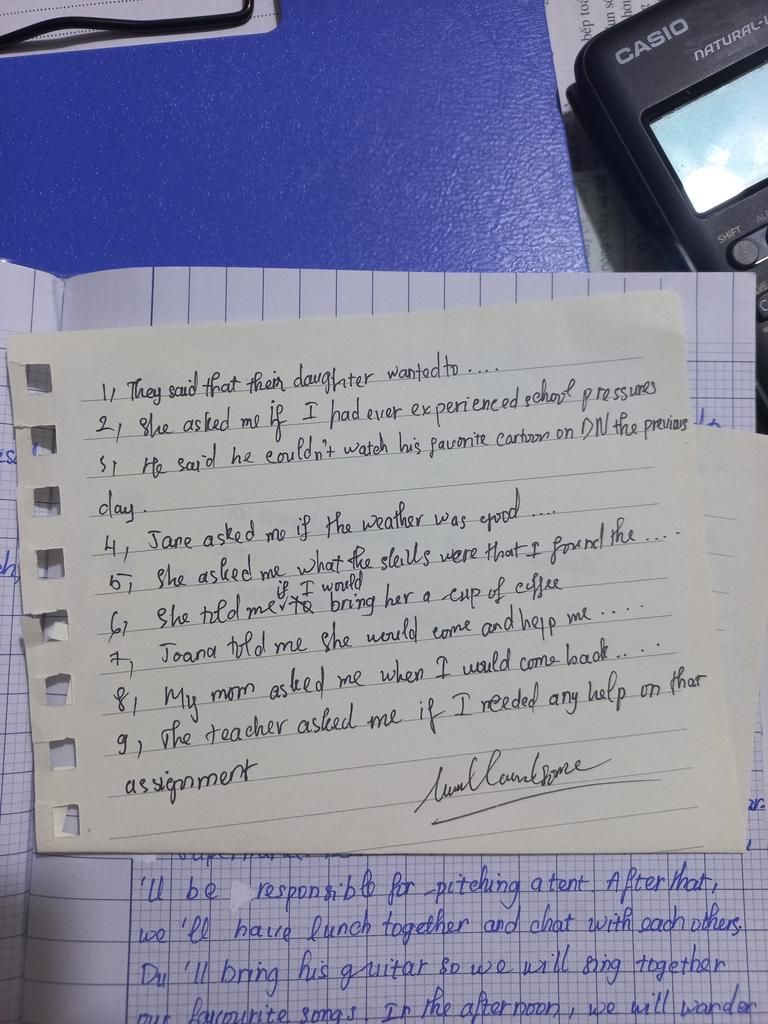 CASIO
NATURAL-
SHIFT
1, They said that their daughter wanted to ....
2, She asked me if I had ever experienced school pressures
3, He said he couldn't watch his favorite cartoon on DN the previous
day.
4, Jane asked me if the weather was good ....
5, She asked me what the skills were that I found the ....
if I would
6, She told me to bring her a cup of coffee
7, Joana told me she would come and help me ....
8, My mom asked me when I would come back ....
9, The teacher asked me if I needed any help on that
assignment
'll be responsible for pitching a tent. After that,
we 'll have lunch together and chat with each others.
Du 'll bring his guitar so we will sing together
our favourite songs. In the afternoon, we will wander